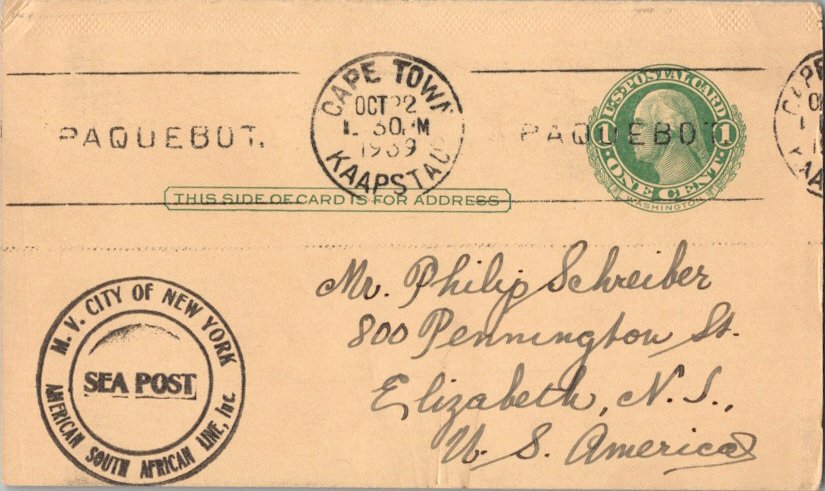 CAPE TOWN
OCT 22
30 PM
1939
KAAPSTAD
PAQUEBOT.
PAQUEBOT
U.S. POSTAL CARD
1 1
ONE CENT
WASHINGTON
THIS SIDE OF CARD IS FOR ADDRESS
M. V. CITY OF NEW YORK
SEA POST
AMERICAN SOUTH AFRICAN LINE, Inc.
Mr. Philip Schreiber
800 Pennington St.
Elizabeth, N. J.,
U. S. America